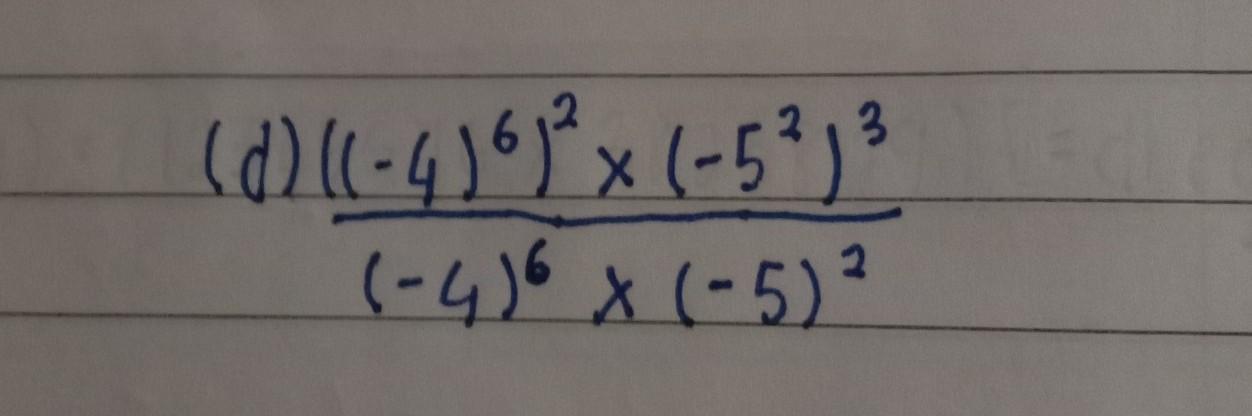 (d) ((-4)⁶)² × (-5²)³
(-4)⁶ × (-5)²